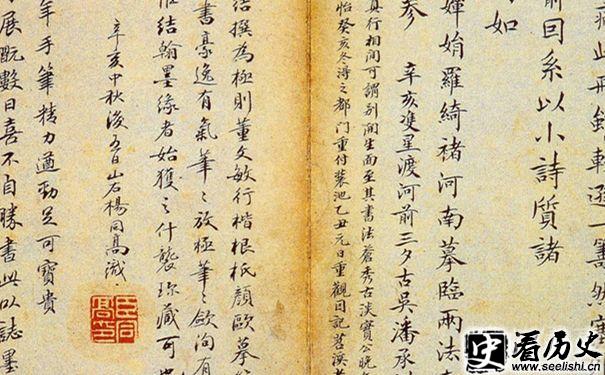 此飛鈍轉遜一籌然
前回系以小詩質諸
如
嬋娟羅綺褚河南摹臨兩法
參 辛亥雙星渡河前三夕古吳潘承
真行相間可謂別開生面至其書法蒼秀古淡實公晚
怡癸亥冬得之都門重付裝池乙丑元日重觀因記苕溪
結撰為極則董文敏行楷根柢顏歐摹
書豪逸有氣筆〻放極筆〻歛間有
結翰墨緣者始獲之什襲珍藏可
辛亥中秋後五日山右楊同高識
年手筆精力遒勁足可寶貴
展翫數日喜不自勝書此以誌墨
看历史
www.seelishi.cn